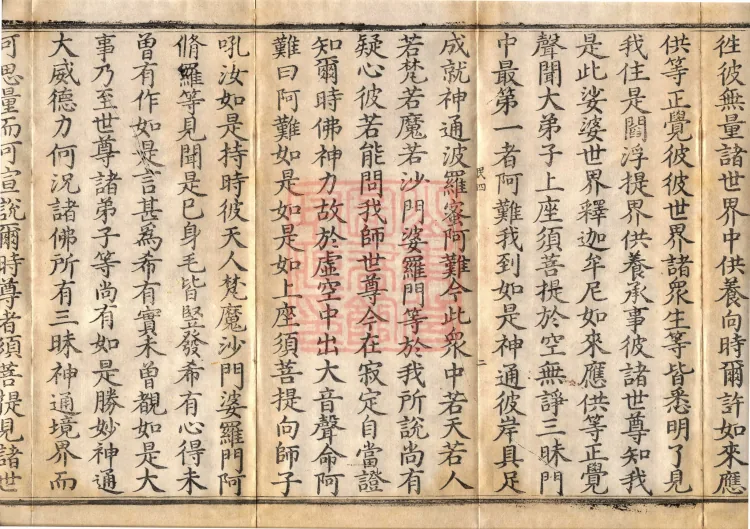 徃彼無量諸世界中供養向時爾許如來應
供等正覺彼彼世界諸衆生等皆悉明了見
我住是閻浮提界供養承事彼諸世尊知我
是此娑婆世界釋迦牟尼如來應供等正覺
聲聞大弟子上座須菩提於空無諍三昧門
中最第一者阿難我到如是神通彼岸具足
民四
二
成就神通波羅蜜阿難今此衆中若天若人
若梵若魔若沙門婆羅門等於我所說尚有
疑心彼若能問我師世尊今在寂定自當證
知爾時佛神力故於虛空中出大音聲命阿
難曰阿難如是如是如上座須菩提向師子
吼汝如是持時彼天人梵魔沙門婆羅門阿
脩羅等見聞是已身毛皆竪發希有心得未
曾有作如是言甚爲希有實未曾覩如是大
事乃至世尊諸弟子等尚有如是勝妙神通
大威德力何況諸佛所有三昧神通境界而
可思量而可宣說爾時尊者須菩提見諸世